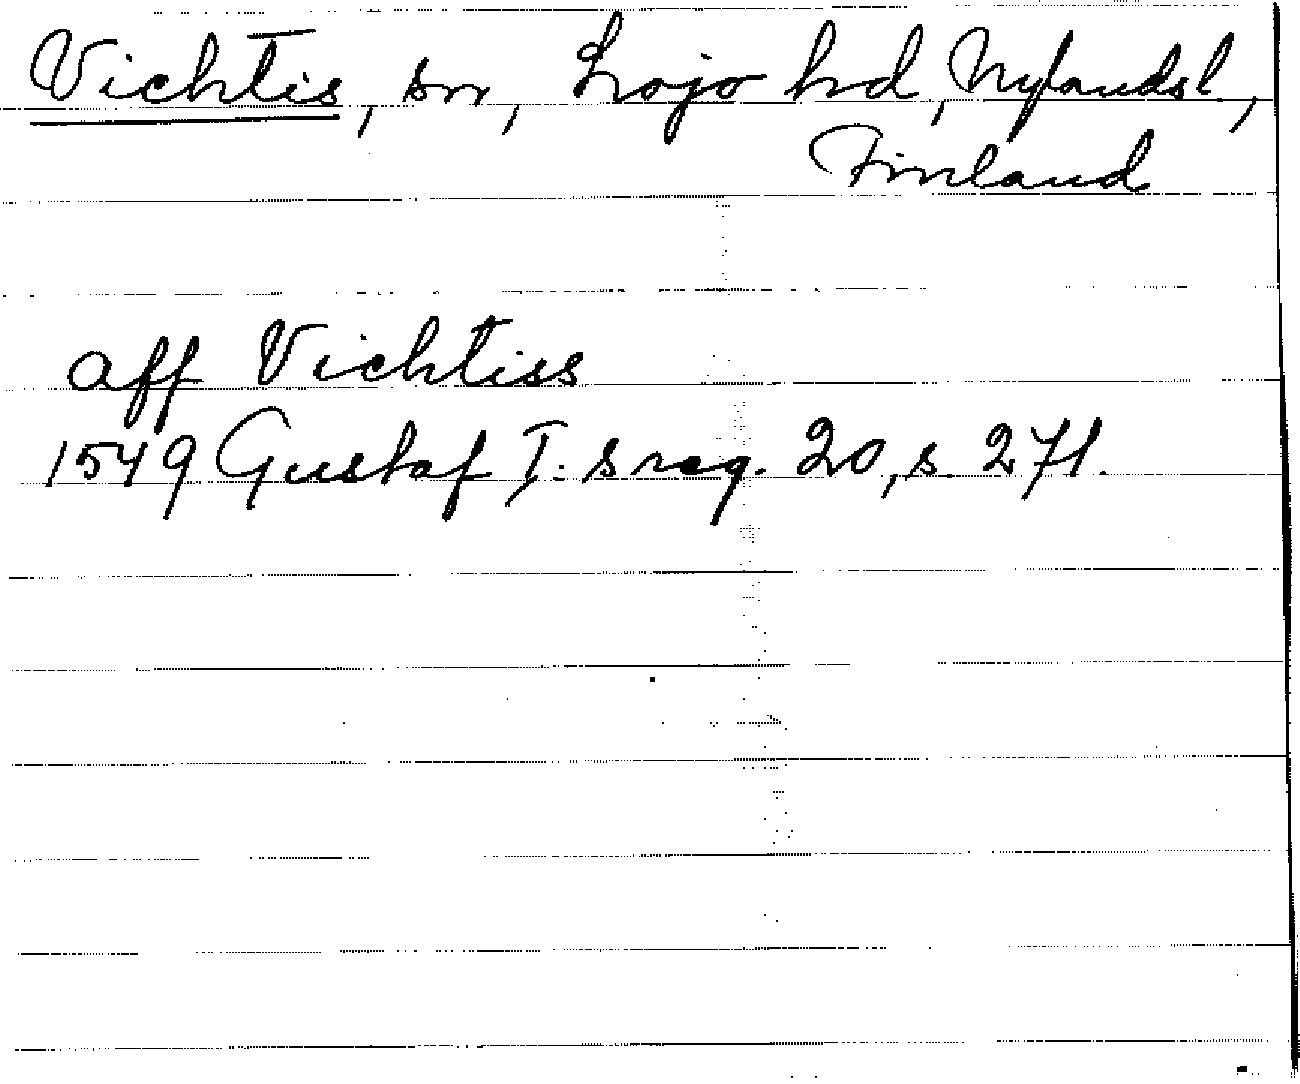 Vichtis, sn, Lojo hd, Nylandsl,
Finland
aff Vichtiss
1549 Gustaf I:s reg. 20, s. 271.